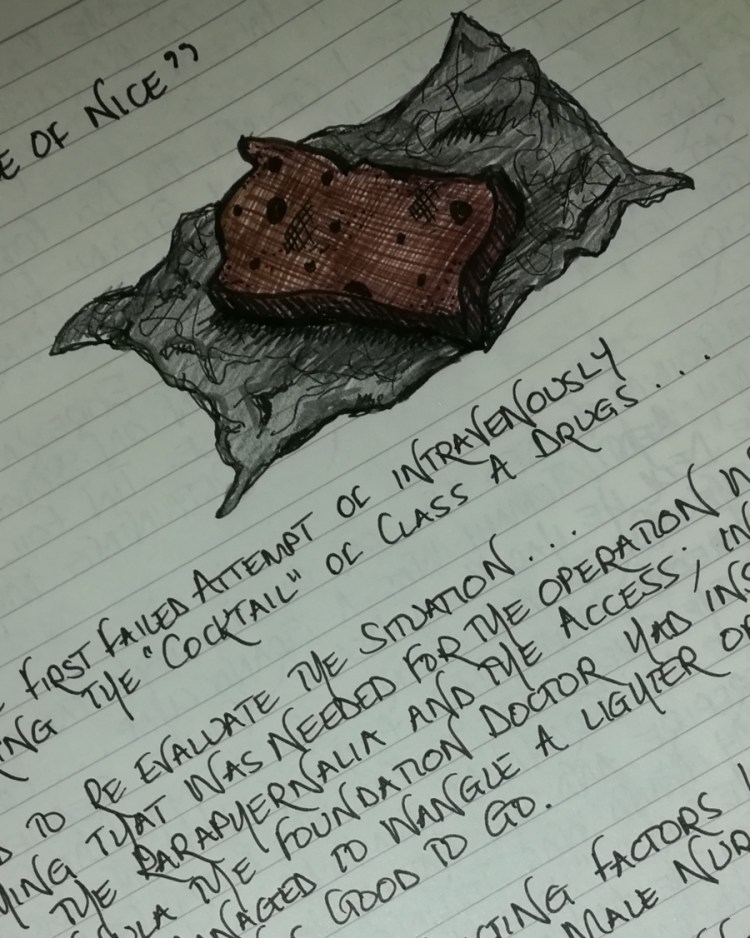 E OF NICE"
FIRST FAILED ATTEMPT OF INTRAVENOUSLY
ING THE "COCKTAIL" OF CLASS A DRUGS....
D TO RE EVALUATE THE SITUATION...
HING THAT WAS NEEDED FOR THE OPERATION W
THE PARAPHERNALIA AND THE ACCESS; IN
ULA THE FOUNDATION DOCTOR HAD INS
NAGED TO WANGLE A LIGHTER O
GOOD TO GO.
CTING FACTORS
MALE NUR